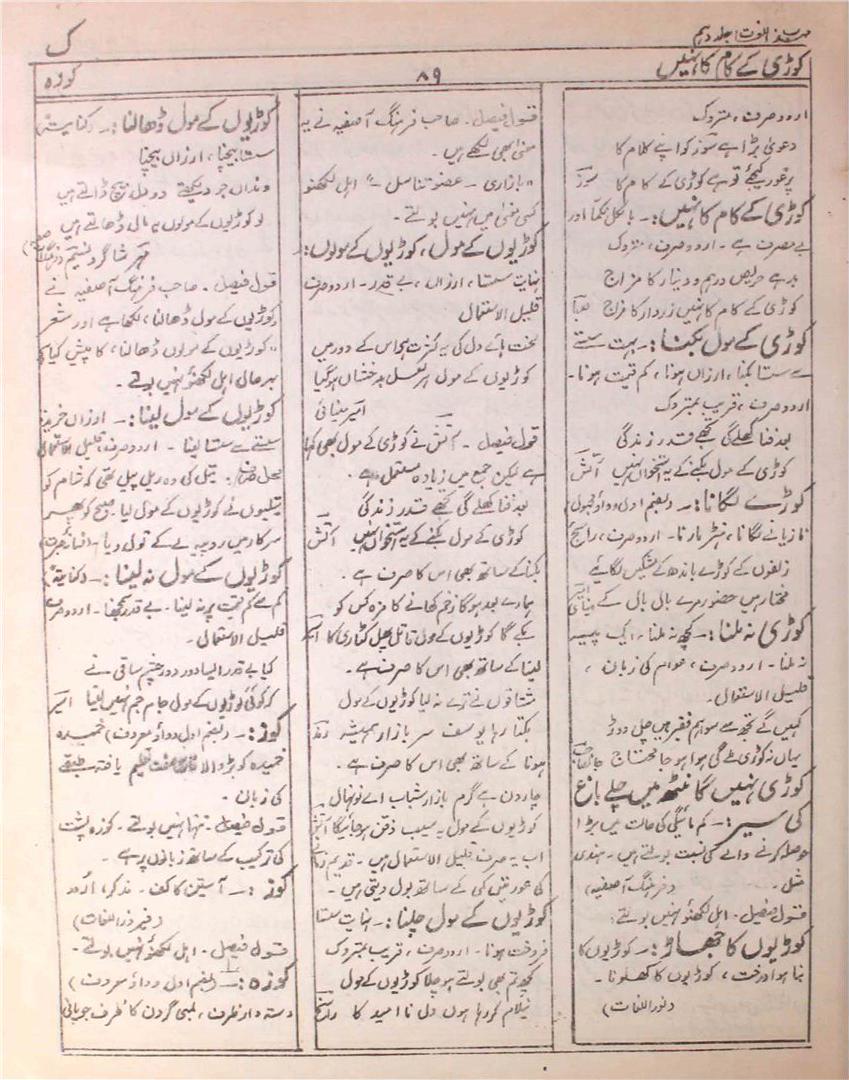 مہذب اللغات جلد دہم
ک
کوڑی کے کام کا نہیں
۸۹
کوزہ
اردو صرف، متروک
دعویٰ بڑا ہے سوز کو اپنے کلام کا
پر غور کیجئے تو ہے کوڑی کے کام کا سوز
کوڑی کے کام کا نہیں :۔ بالکل نکما اور
بے مصرف ہے ۔ اردو صرف، متروک
بر ہے حریص درہم و دینار کا مزاج
کوڑی کے کام کا نہیں زردار کا مزاج صبا
کوڑی کے مول بکنا :۔ بہت سستے
سے سستا بکنا، ارزاں ہونا، کم قیمت ہونا۔
اردو صرف، قریب بمتروک
بعد فنا کھلے گی مجھے قدر زندگی
کوڑی کے مول بکنے کے یہ استخواں نہیں آتش
کوڑے لگانا :۔ (بضم اول و واؤ مجہول)
تازیانے لگانا، ہنٹر مارنا۔ اردو صرف، رائج
زلفوں کے کوڑے باندھ کے مشکیں لگائیے
مختار ہیں حضور مرے بال بال کے امیر مینائی
کوڑی نہ ملنا :۔ کچھ نہ ملنا۔ ایک پیسہ
نہ ملنا۔ اردو صرف، عوام کی زبان،
قلیل الاستعمال۔
کہیں گے تجھ سے سو اہم فقیر ہیں چل دوڑ
یہاں نہ کوڑی ملے گی ہوا ہو جا محتاج جانصاحب
کوڑی نہیں گانٹھ میں چلے باغ
کی سیر :۔ کم مائیگی کی حالت میں بڑا
حوصلہ کرنے والے کی نسبت بولتے ہیں۔ ہندی
مثل۔ (فرہنگ آصفیہ)
قول فیصل۔ اہل لکھنؤ نہیں بولتے۔
کوڑیوں کا جھاڑ :۔ کوڑیوں کا
بنا ہوا درخت، کوڑیوں کا کھلونا۔
(نور اللغات)
قول فیصل۔ صاحب فرہنگ آصفیہ نے یہ
معنی بھی لکھے ہیں۔
"بازاری ۔ عضو تناسل" اہل لکھنؤ
کسی معنی میں نہیں بولتے۔
کوڑیوں کے مول، کوڑیوں کے مولوں :
نہایت سستا، ارزاں، بے قدر۔ اردو صرف
قلیل الاستعمال
لخت ہائے دل کی یہ کثرت ہوا اس کے دور میں
کوڑیوں کے مول ہر لعل بدخشاں ہو گیا
امیر مینائی
قول فیصل۔ آتش نے کوڑی کے مول بھی کہا
ہے لیکن جمع میں زیادہ مستعمل ہے۔
بعد فنا کھلے گی مجھے قدر زندگی
کوڑی کے مول بکنے کے یہ استخواں نہیں آتش
بکنا کے ساتھ بھی اس کا صرف ہے۔
ہمارے بعد ہو گا زخم کھانے کا مزہ کس کو
بکے گا کوڑیوں کے مول قاتل پھل کٹاری کا
لینا کے ساتھ بھی اس کا صرف ہے۔
مشتاقوں نے ترے نہ لیا کوڑیوں کے مول
بکتا رہا یوسف سر بازار ہمیشہ رند
ہونا کے ساتھ بھی اس کا صرف ہے۔
چار دن ہے گرم بازار شباب اے نونہال
کوڑیوں کے مول یہ سیب ذقن ہو جائیگا آتش
اب یہ صرف قلیل الاستعمال ہیں۔ قدیم زمانے
کی عورتیں کمی کے ساتھ بول دیتی ہیں۔
کوڑیوں کے مول چلنا :۔ نہایت سستا
فروخت ہونا۔ اردو صرف، قریب بمتروک
کچھ تم بھی بولتے ہو چلا کوڑیوں کے مول
نیلام کر رہا ہوں دل نا امید کا راسخ
کوڑیوں کے مول ڈھالنا :۔ (کنایتہ)
سستا بیچنا، ارزاں بیچنا
دنداں جو دیکھتے دو مل بیچ ڈالتے ہیں
لو کوڑیوں کے مولوں یہ مال ڈھالتے ہیں
مہر شاگرد نسیم
قول فیصل۔ صاحب فرہنگ آصفیہ نے
"کوڑیوں کے مول ڈھالنا" لکھا ہے اور شعر
"کوڑیوں کے مولوں ڈھالنا" کا پیش کیا ہے
بہر حال اہل لکھنؤ نہیں بولتے۔
کوڑیوں کے مول لینا :۔ ارزاں خریدنا
سستے سے سستا لینا ۔ اردو صرف، قلیل الاستعمال
محل صرف: تیل کی وہ ریل پیل تھی کہ شام کو
تیلیوں نے کوڑیوں کے مول لیا۔ صبح کو پھر
سرکار میں روپیہ لے کے تول دیا۔
کوڑیوں کے مول نہ لینا :۔ (کنایتہ)
کم سے کم قیمت پر نہ لینا۔ بے قدر سمجھنا۔ اردو صرف
قلیل الاستعمال۔
کیا بے قدر ایسا دور دور چشم ساقی نے
کہ کوئی کوڑیوں کے مول جام جم نہیں لیتا امیر
کوز :۔ (بضم اول و واؤ معروف) خمیدہ
خمیدہ کوبڑ والا۔ فارسی صفت تعلیم یافتہ طبقے
کی زبان۔
قول فیصل۔ تنہا نہیں بولتے۔ کوزہ پشت
کی ترکیب کے ساتھ زبانوں پر ہے۔
کوز :۔ آستین کا کف۔ مذکر، اردو
قول فیصل۔ اہل لکھنؤ نہیں بولتے۔
کوزہ :۔ (بضم اول و واؤ معروف)
دستہ دار ظرف، لمبی گردن کا ظرف جو پانی